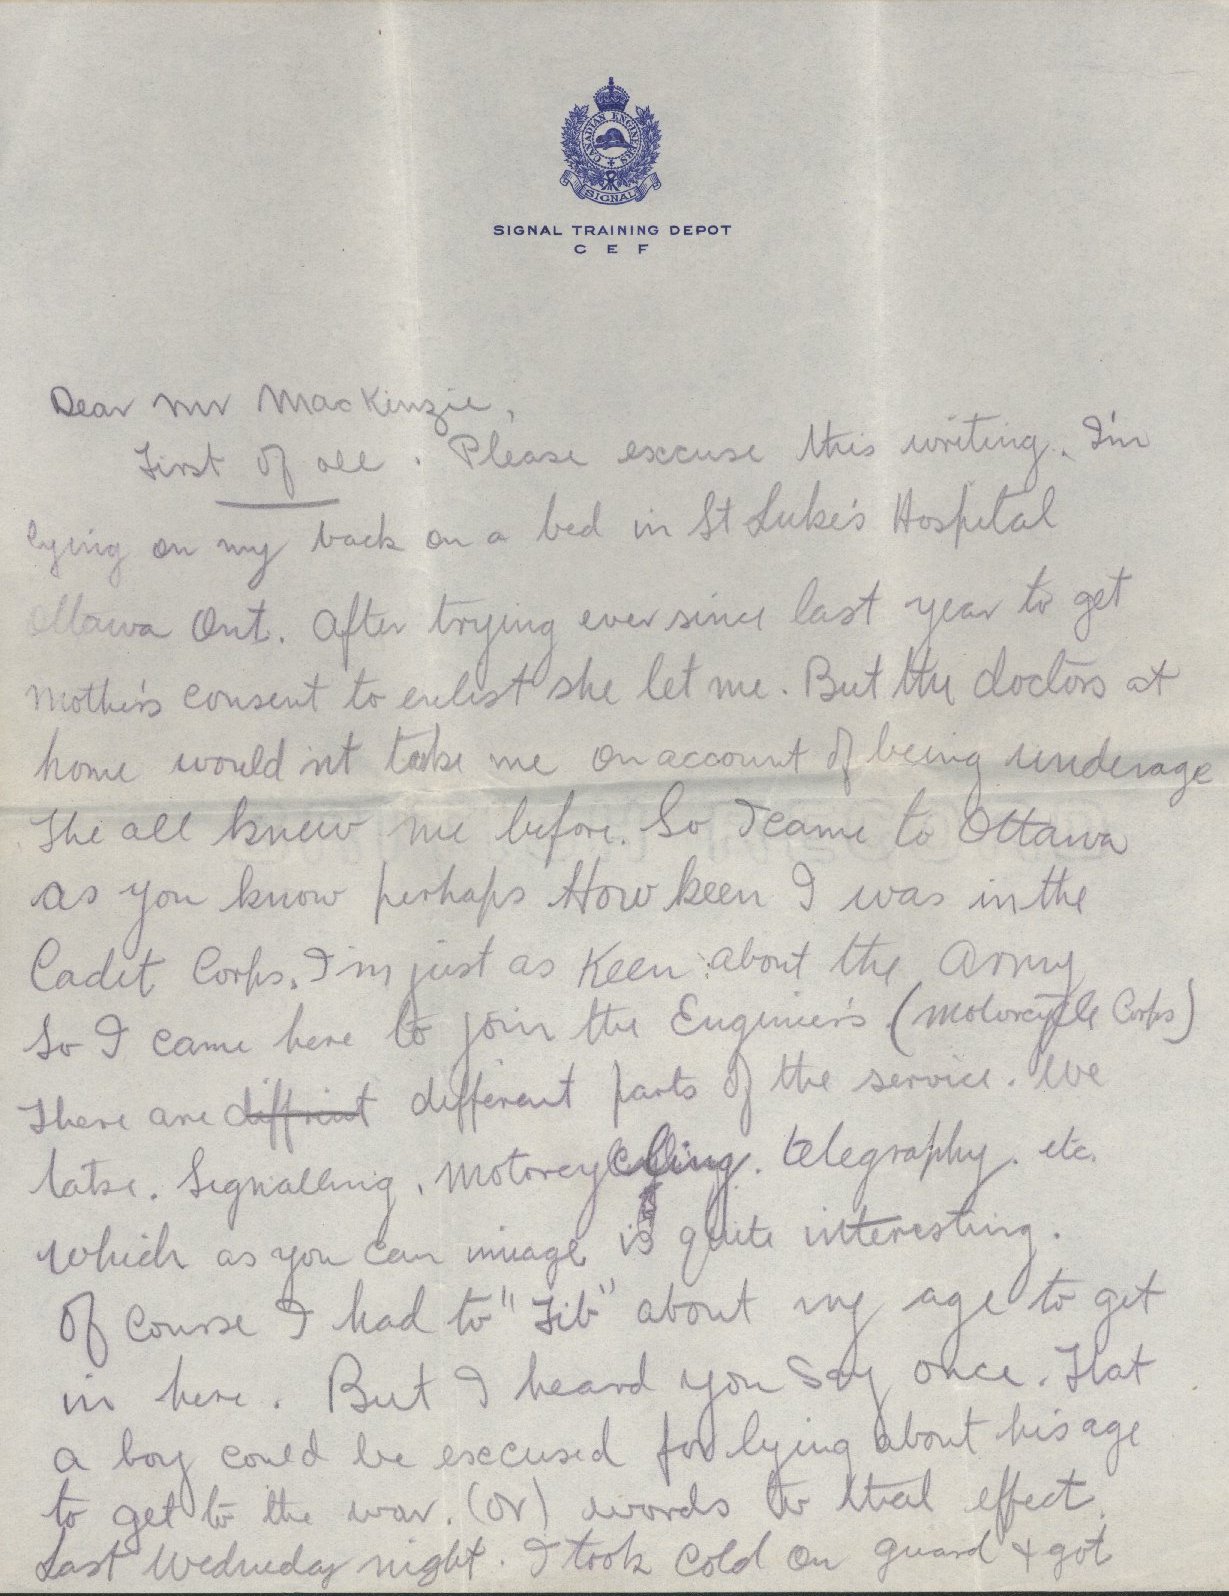 CANADIAN ENGINEERS
SIGNAL
SIGNAL TRAINING DEPOT
C E F
Dear Mr MacKenzie,
First of all. Please excuse this writing. I'm
lying on my back on a bed in St Luke's Hospital
Ottawa Ont. After trying ever since last year to get
Mother's consent to enlist she let me. But the doctors at
home would'nt take me on account of being underage
The all knew me before. So I came to Ottawa
as you know perhaps How keen I was in the
Cadet Corps. I'm just as Keen about the Army
So I came here to join the Engineer's (Motorcycle Corps)
There are diffrint different parts of the service. We
take. Signalling, Motorcycling. telegraphy. etc.
which as you can imiage is quite interesting.
Of course I had to "Fib" about my age to get
in here. But I heard you say once. That
a boy could be exccused for lying about his age
to get to the war. (or) words to that effect.
Last Wednesday night. I took cold on guard & got